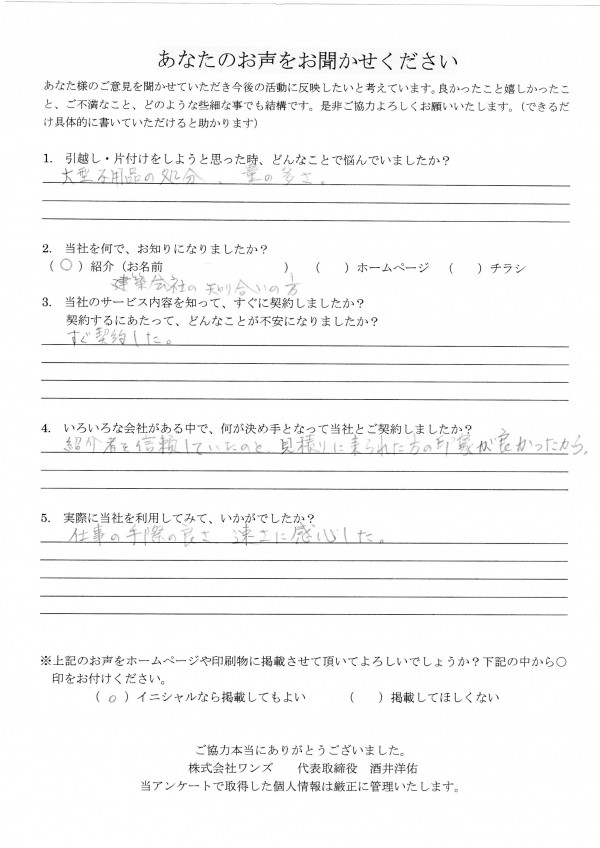 あなたのお声をお聞かせください
あなた様のご意見を聞かせていただき今後の活動に反映したいと考えています。良かったこと嬉しかったこ
と、ご不満なこと、どのような些細な事でも結構です。是非ご協力よろしくお願いいたします。（できるだ
け具体的に書いていただけると助かります）
1. 引越し・片付けをしようと思った時、どんなことで悩んでいましたか？
大型不用品の処分、量の多さ。
2. 当社を何で、お知りになりましたか？
（ ○ ）紹介（お名前　　　　　　　　）　（　）ホームページ　（　）チラシ
建築会社の知り合いの方
3. 当社のサービス内容を知って、すぐに契約しましたか？
契約するにあたって、どんなことが不安になりましたか？
すぐ契約した。
4. いろいろな会社がある中で、何が決め手となって当社とご契約しましたか？
紹介者を信頼していたのと、見積りに来られた方の印象が良かったから。
5. 実際に当社を利用してみて、いかがでしたか？
仕事の手際の良さ、速さに感心した。
※上記のお声をホームページや印刷物に掲載させて頂いてよろしいでしょうか？下記の中から○
印をお付けください。
（ ○ ）イニシャルなら掲載してもよい　　（　）掲載してほしくない
ご協力本当にありがとうございました。
株式会社ワンズ　　代表取締役　酒井洋佑
当アンケートで取得した個人情報は厳正に管理いたします。